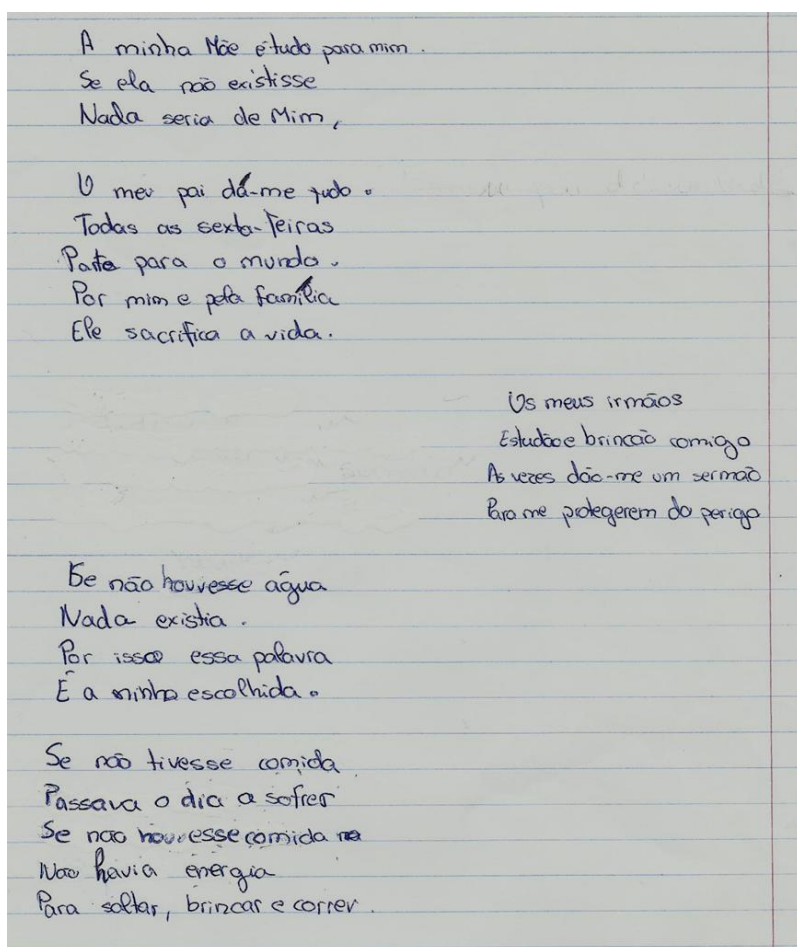 A minha Mãe é tudo para mim.
Se ela não existisse
Nada seria de Mim,
O meu pai dá-me tudo.
Todas as sexta-feiras
Parte para o mundo.
Por mim e pela família
Ele sacrifica a vida.
Os meus irmãos
Estudão e brincão comigo
As vezes dão-me um sermão
Para me protegerem do perigo
Se não houvesse água
Nada existia.
Por isso essa palavra
É a minha escolhida.
Se não tivesse comida
Passava o dia a sofrer
Se nao houvesse comida
Nao havia energia
Para saltar, brincar e correr.